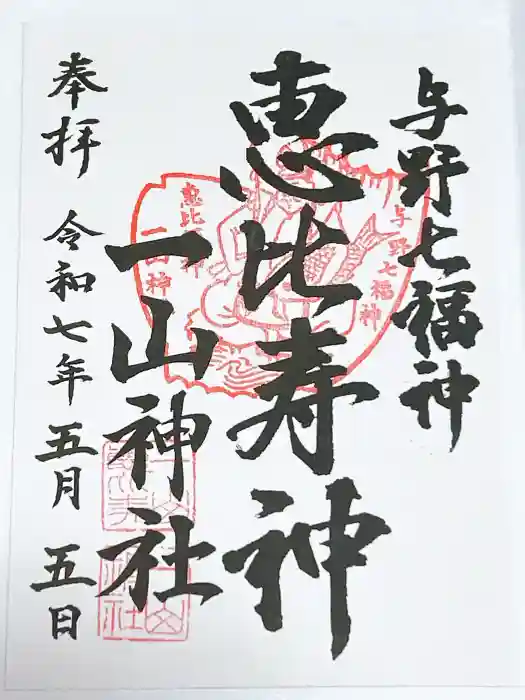 与野七福神
恵比寿神
一山神社
奉拝 令和七年五月五日
与野七福神
恵比寿神
一山神社